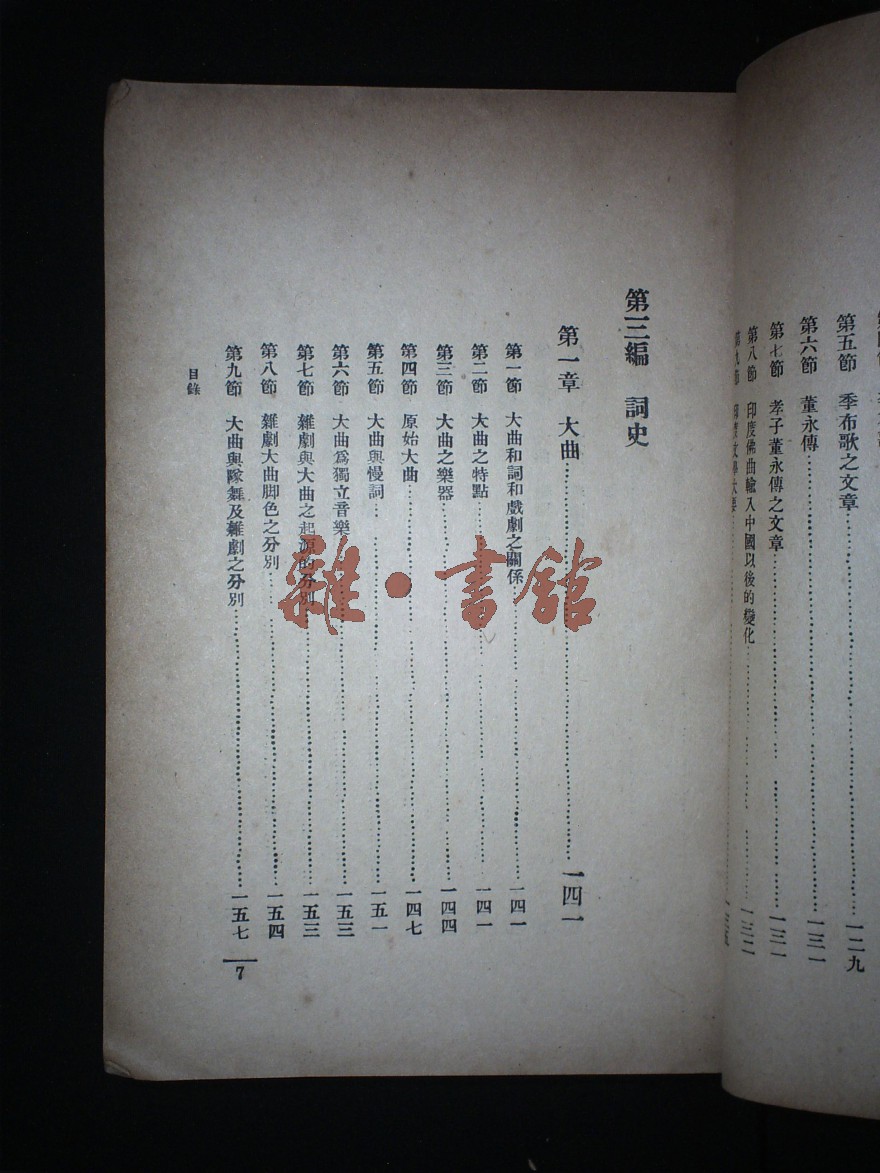 第五節 季布歌之文章 一二九
第六節 董永傳 一三一
第七節 孝子董永傳之文章 一三一
第八節 印度佛曲輸入中國以後的變化 一三二
第九節 印度文學大要
第三編 詞史
第一章 大曲 一四一
第一節 大曲和詞和戲劇之關係 一四一
第二節 大曲之特點 一四一
第三節 大曲之樂器 一四四
第四節 原始大曲 一四七
第五節 大曲與慢詞 一五一
第六節 大曲爲獨立音樂 一五三
第七節 雜劇與大曲之起源的分別 一五三
第八節 雜劇大曲脚色之分別 一五四
第九節 大曲與隊舞及雜劇之分別 一五七
目錄
7
雜·書館